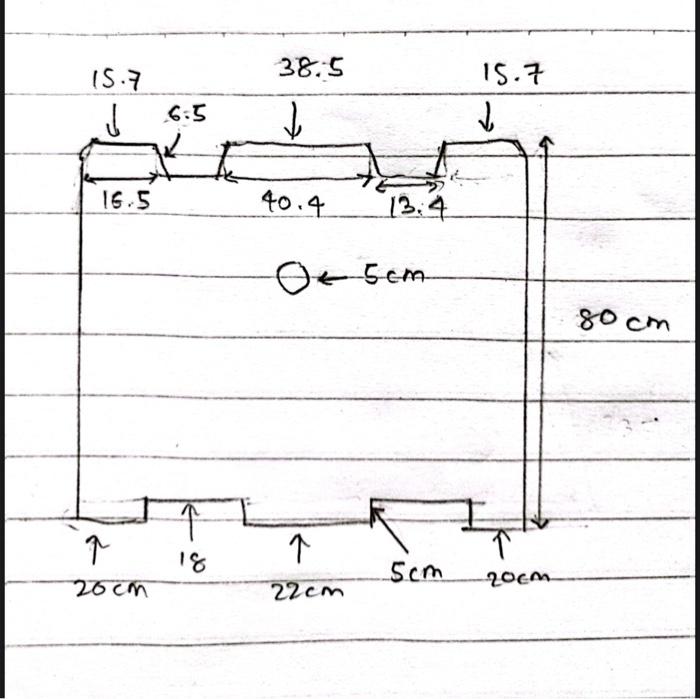 15.7
38.5
15.7
6.5
16.5
40.4
13.4
5cm
80 cm
18
5cm
20cm
22cm
20cm